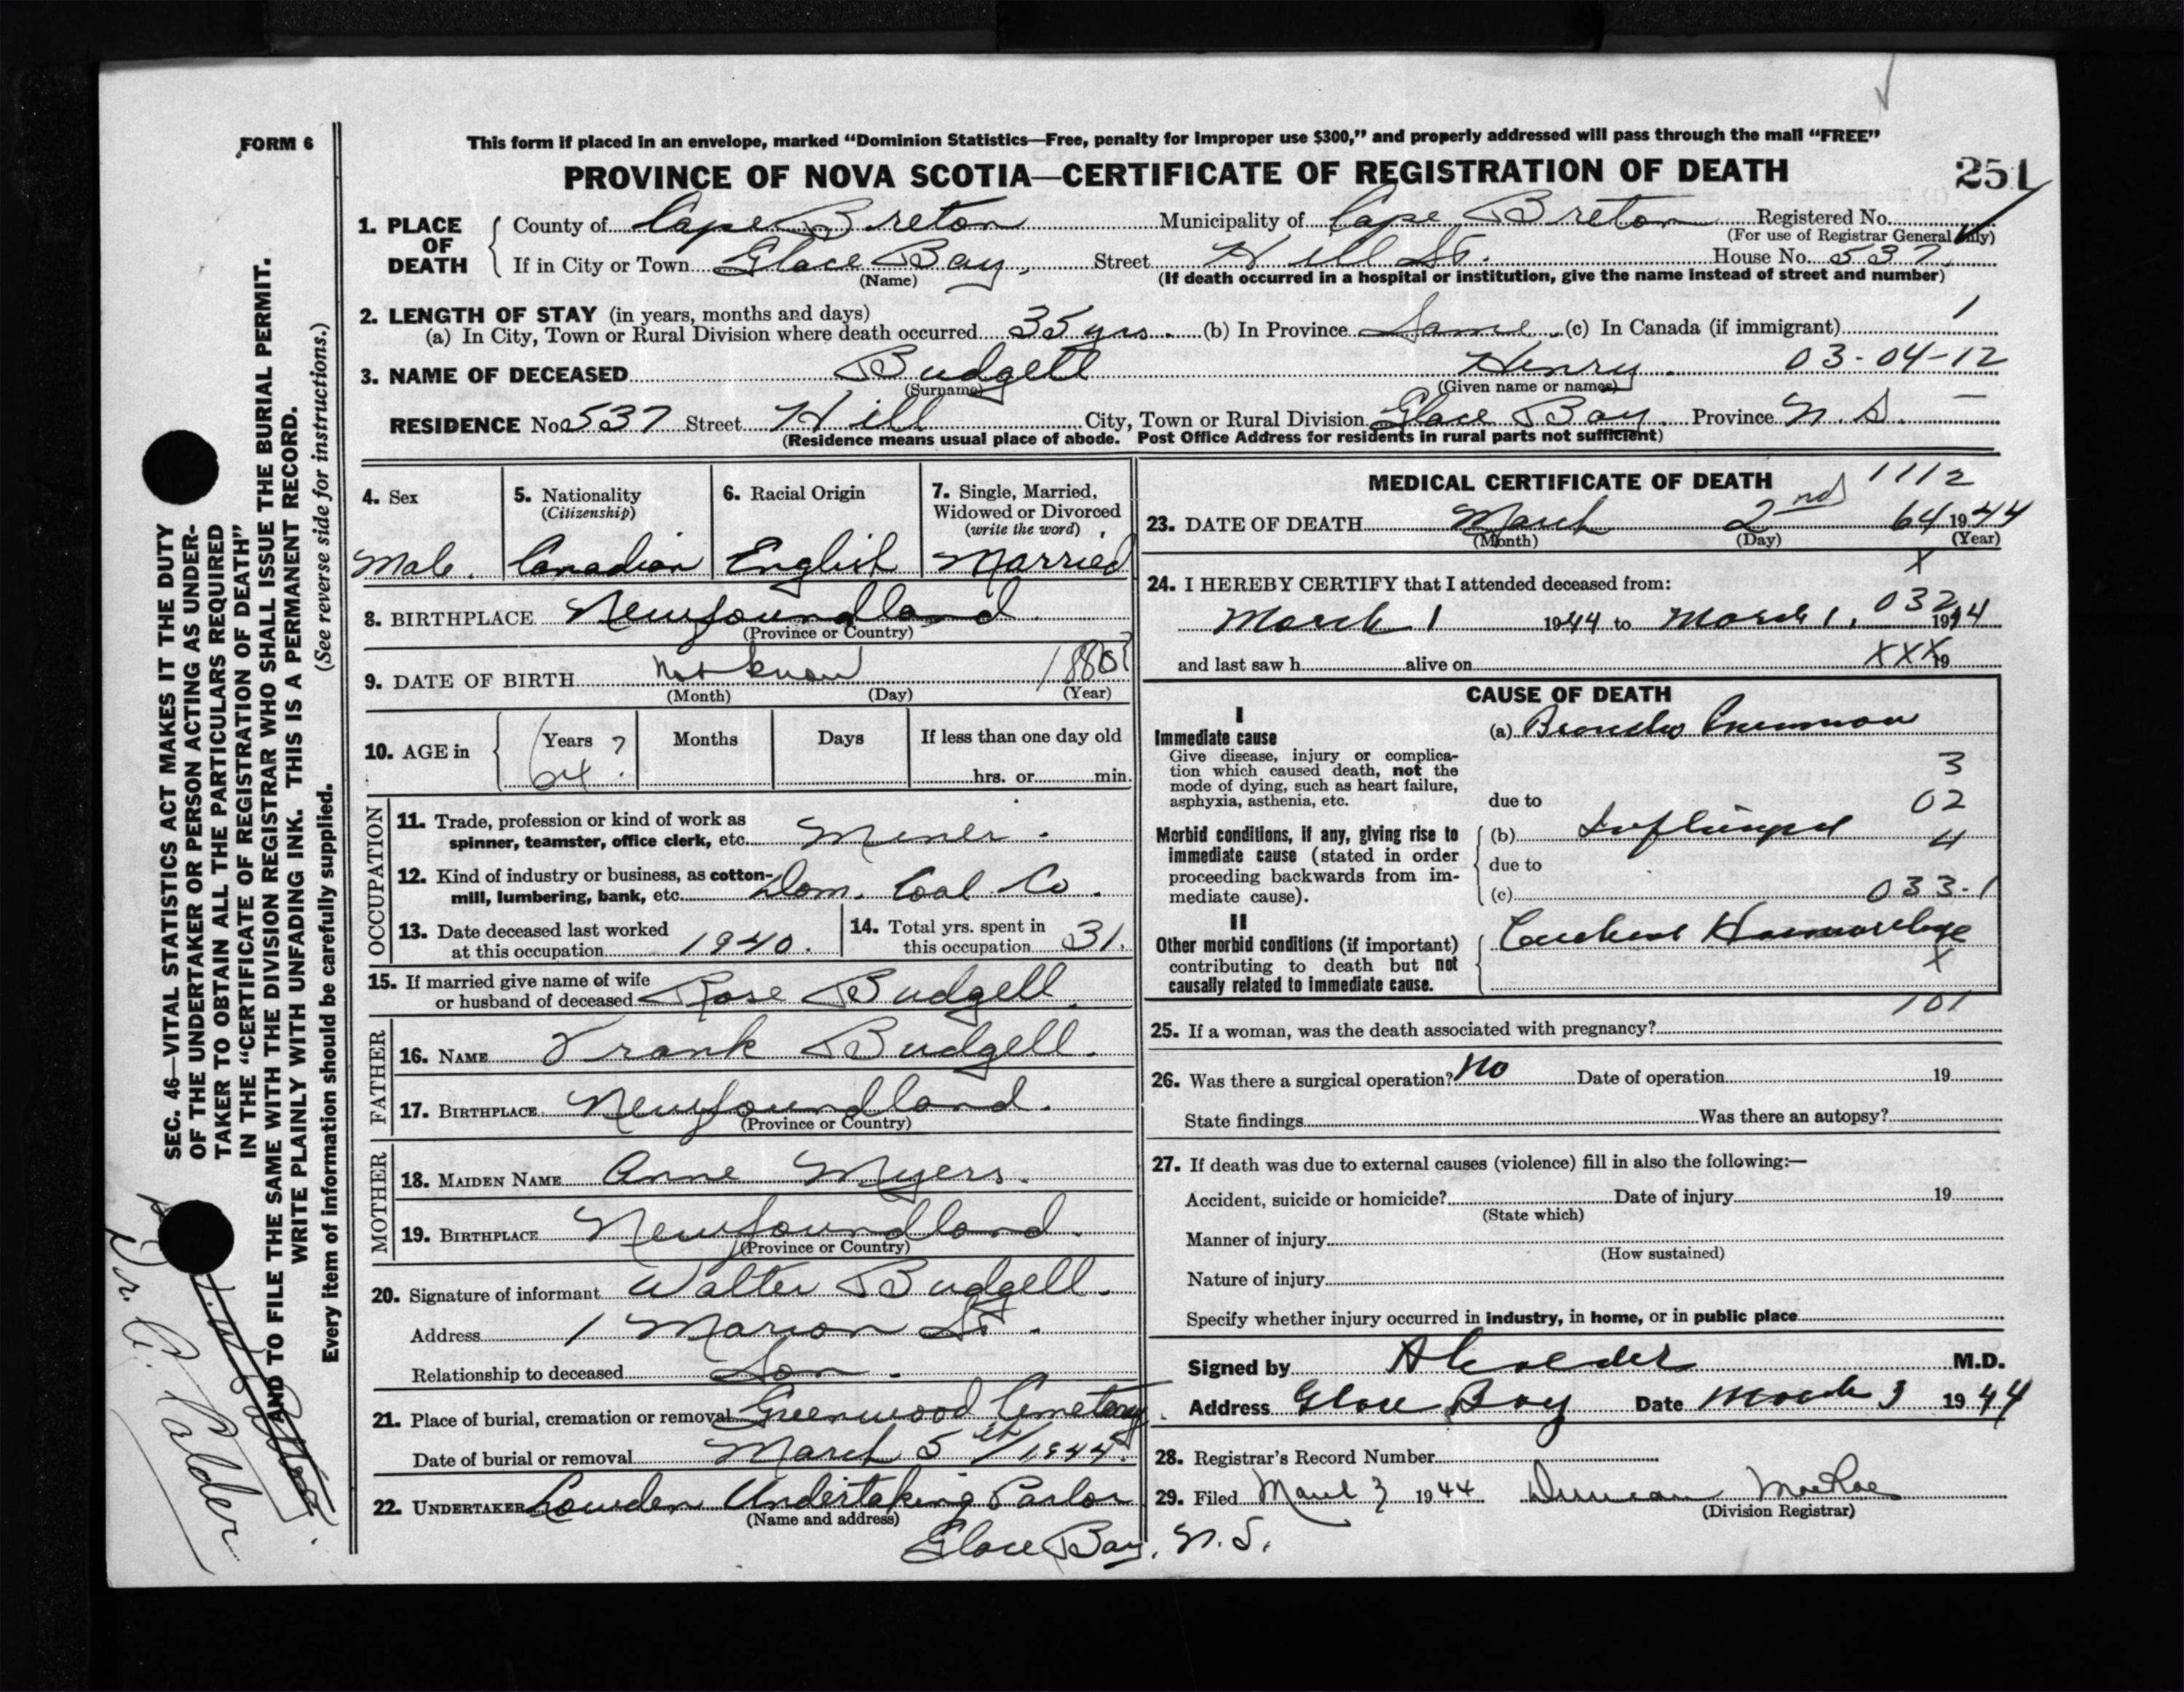 FORM 6
This form if placed in an envelope, marked “Dominion Statistics—Free, penalty for improper use $300,” and properly addressed will pass through the mail “FREE”
PROVINCE OF NOVA SCOTIA—CERTIFICATE OF REGISTRATION OF DEATH
251
1. PLACE OF DEATH County of Cape Breton Municipality of Cape Breton Registered No.
(For use of Registrar General only)
If in City or Town Glace Bay, Street Hill St. House No. 537.
(Name) (If death occurred in a hospital or institution, give the name instead of street and number)
2. LENGTH OF STAY (in years, months and days) 1
(a) In City, Town or Rural Division where death occurred 35 yrs. (b) In Province Same (c) In Canada (if immigrant)
3. NAME OF DECEASED Budgell Henry. 03-04-12
(Surname) (Given name or names)
RESIDENCE No. 537 Street Hill City, Town or Rural Division Glace Bay. Province N. S. —
(Residence means usual place of abode. Post Office Address for residents in rural parts not sufficient)
4. Sex
Male.
5. Nationality
(Citizenship)
Canadian
6. Racial Origin
English
7. Single, Married,
Widowed or Divorced
(write the word)
Married
8. BIRTHPLACE Newfoundland.
(Province or Country)
9. DATE OF BIRTH Not know 1880?
(Month) (Day) (Year)
10. AGE in Years ? Months Days If less than one day old
64. hrs. or min.
OCCUPATION
11. Trade, profession or kind of work as
spinner, teamster, office clerk, etc. Miner.
12. Kind of industry or business, as cotton-
mill, lumbering, bank, etc. Dom. Coal Co.
13. Date deceased last worked
at this occupation 1940.
14. Total yrs. spent in
this occupation 31.
15. If married give name of wife
or husband of deceased Rose Budgell.
FATHER
16. NAME Frank Budgell.
17. BIRTHPLACE Newfoundland.
(Province or Country)
MOTHER
18. MAIDEN NAME Anne Myers.
19. BIRTHPLACE Newfoundland.
(Province or Country)
20. Signature of informant Walter Budgell.
Address 1 Marion St.
Relationship to deceased Son.
21. Place of burial, cremation or removal Greenwood Cemetery.
Date of burial or removal March 5th/1944
22. UNDERTAKER Lowden Undertaking Parlor
(Name and address)
Glace Bay, N. S.
MEDICAL CERTIFICATE OF DEATH 1112
23. DATE OF DEATH March 2nd 64 1944
(Month) (Day) (Year)
X
24. I HEREBY CERTIFY that I attended deceased from:
032
March 1 1944 to March 1, 1944
and last saw h alive on XXX 19
CAUSE OF DEATH
I
Immediate cause
Give disease, injury or complica-
tion which caused death, not the
mode of dying, such as heart failure,
asphyxia, asthenia, etc.
(a) Broncho Pneumon
3
due to 02
Morbid conditions, if any, giving rise to
immediate cause (stated in order
proceeding backwards from im-
mediate cause).
(b) Influenza 4
due to
(c) 033-1
II
Other morbid conditions (if important)
contributing to death but not
causally related to immediate cause.
Haemorrhage
X
101
25. If a woman, was the death associated with pregnancy?
26. Was there a surgical operation? No Date of operation 19
State findings Was there an autopsy?
27. If death was due to external causes (violence) fill in also the following:—
Accident, suicide or homicide? Date of injury 19
(State which)
Manner of injury
(How sustained)
Nature of injury
Specify whether injury occurred in industry, in home, or in public place
Signed by A Calder M.D.
Address Glace Bay Date March 3 1944
28. Registrar's Record Number
29. Filed March 3 1944 Duncan MacRae
(Division Registrar)
SEC. 46—VITAL STATISTICS ACT MAKES IT THE DUTY
OF THE UNDERTAKER OR PERSON ACTING AS UNDER-
TAKER TO OBTAIN ALL THE PARTICULARS REQUIRED
IN THE “CERTIFICATE OF REGISTRATION OF DEATH”
AND TO FILE THE SAME WITH THE DIVISION REGISTRAR WHO SHALL ISSUE THE BURIAL PERMIT.
WRITE PLAINLY WITH UNFADING INK. THIS IS A PERMANENT RECORD.
Every item of information should be carefully supplied. (See reverse side for instructions.)
Dr. A. Calder